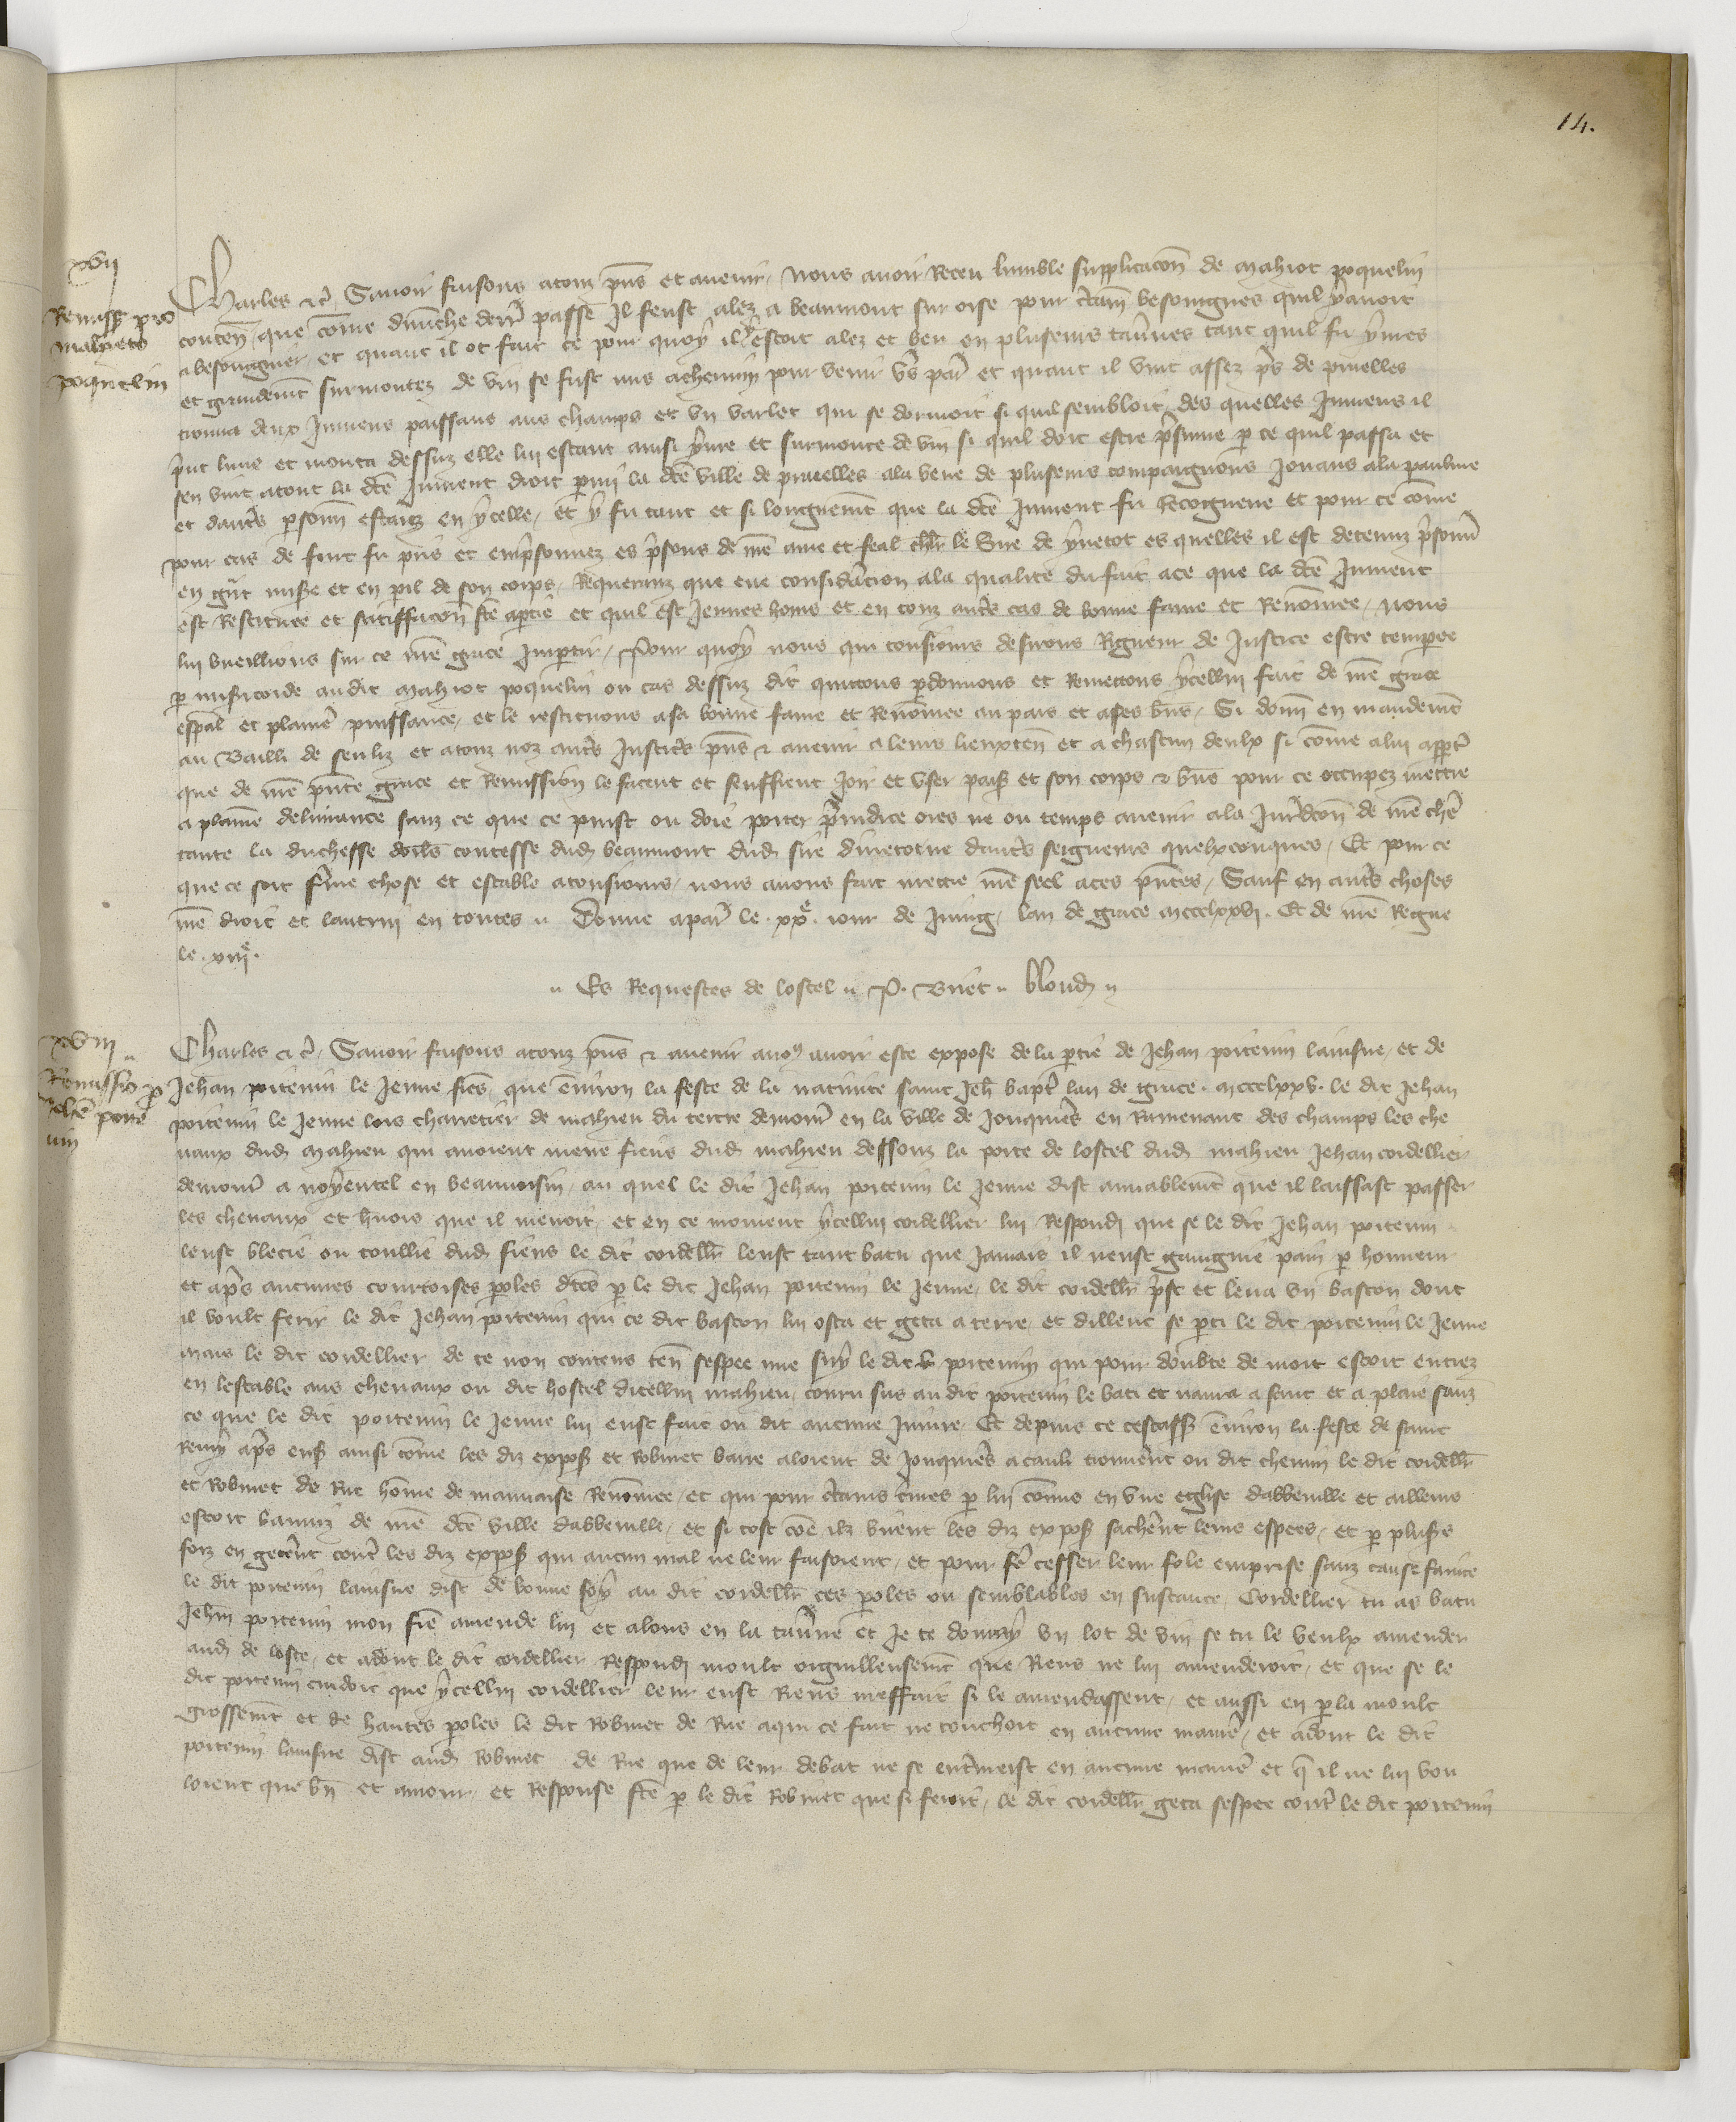 14.
xvii
Remissio pro
mahieto
poquelin
Charles etc. Savoir faisons a touz pñs et avenir, nous avoir receu lumble supplicacõn de Mahiot poquelin
conteñ, que cõme dimẽche derr̃ passe Il feust alez a beaumont sur oise pour c̃tain̄ besoingnes quil y avoit
a besoingner, et quant il ot fait ce pour quoy il y estoit alez et beu en pluseurs taṽnes tant quil fu yvres
et grandem̃t surmontez de vin se fust mis a chemin pour venir ṽs par̃ et quant il vint assez p̃s de pruelles
trouva deux Jumens paissans aus champs et un varlet qui se dormoit si quil sembloit, des quelles Jumens il
p̃nt lune et monta dessuz elle lui estant ainsi yvre et surmonte de vin si quil doit estre p̃sume p ce quil passa et
sen vint atout la dc̃e Jument droit parmi la dc̃e ville de pruelles a la veue de pluseurs compaignons Jouans a la paulme
et daut̃s p̃sonn̄ estanz en ycelle, et y fu tant et si longuem̃t que la dc̃e Jument fu recogneue et pour ce cõme
pour cas de furt fu p̃ns et emp̃sonnez es p̃sons de nr̃e ame et feal chl̃r le Sire de yvetot es quelles il est detenuz p̃sonn̄
en gñt misẽe et en pil de son corps, Requeranz que eue considẽacion a la qualite du fait a ce que la dc̃e Jument
est restituee et satiffacõn fc̃e a ptie et quil est Jeunes homs et en touz aut̃s cas de bonne fame et renõmee, nous
lui vueillions sur ce nr̃e grace Impartir, Pour quoy nous qui tousjours desirons rigueur de Justice estre tempee
p misẽicorde audit Mahiot poquelin ou cas dessuz dit quittons pdonnons et remettons ycellui fait de nr̃e grace
esp̃al et plain̄e puissance, et le restituons a sa bonne fame et renõmee au pais et a ses biẽs, Si donn̄ en mandem̃t
au Bailli de senliz et a touz noz aut̃s Justic̃s pñs et avenir a leurs lieuxteñ et a chascun deulx si cõme a lui appt̃
que de nr̃e pñte grace et remission le facent et seuffrent Joir et user paisiblem̃t et son corps et biẽs pour ce occupez mettre
a plain̄e delivrance sanz ce que ce puist ou doie porter p̃judice ores ne ou temps avenir a la Jur̃dcõn de nr̃e chẽ
tante la duchesse dorl̃s contesse dud̃ beaumont dud̃ sire divetot ne daut̃s seigneurs quelxconques, Et pour ce
que ce soit f̃me chose et estable a tousjours, nous avons fait mettre nr̃e seel a ces pñtes, Sauf en aut̃s choses
nr̃e droit et lautrui en toutes. Donne a par̃ le .xxe. jour de Juing, lan de grace mccclxxvi. Et de nr̃e Regne
le .xiiie.
Es Requestes de lostel. P. Buet. blond
xviii
Remissio p
Johẽ poite
vin
Charles etc. Savoir faisons a touz pñs et avenir a nous avoir este expose de la ptie de Jehan poitevin lainsne, et de
Jehan poitevin le Jeune fr̃es, que environ la feste de la nativite saint Jeh̃ bapt̃ lan de grace. mccclxxv. le dit Jehan
poitevin le Jeune lors charretier de mahieu du tertre demour̃ en la ville de Jonquier̃s en ramenant des champs les che
vaux dud̃ Mahieu qui avoient mene fiens dud̃ mahieu dessouz la porte de lostel dud̃ mahieu Jehan cordellier
demour̃ a noyentel en beauvoisin, au quel le dit Jehan poitevin le Jeune dist amiablem̃t que il laissast passer
les chevaux et h̃nois que il menoit, et en ce moment ycellui cordellier lui respondi que se le dit Jehan poitevin
leust blecie ou toullie dud̃ fiens le dit cordell̃r leust tant batu que Jamais il neust gaaignie pain p honneur
et ap̃s aucunes courtoises poles dc̃es p le dit Jehan poitevin le Jeune, le dit cordell̃r p̃st et leva un baston dont
il voult ferir le dit Jehan poitevin qui ce dit baston lui osta et geta a terre, et dillenc se pti le dit poitevin le Jeune
mais le dit cordellier de ce non contens teñ sespee nue suy le dit poitevin qui pour doubte de mort estoit entrez
en lestable aus chevaux ou dit hostel dicellui mahieu, couru sus au dit poitevin le bati et navra a sanc et a plaie sanz
ce que le dit poitevin le Jeune lui eust fait ou dit aucune Injure. Et depuis ce environ la feste de saint
Remy ap̃s ens̃ ainsi cõme les diz expos̃ et Robinet barre aloient de Jonquier̃s a canli trouver̃nt ou dit chemin le dit cordell̃r
et Robinet de Rue hõme de mauvaise renõmee, et qui pour c̃tains c̃mes p lui cõmis en une eglise dabbeville et ailleurs
estoit banniz de nr̃e dc̃e ville dabbeville, et si tost cõe ilz virent les diz expos̃ sachẽrnt leurs espees, et p plus̃s
foiz en getẽrnt cont̃ les diz expos̃ qui aucun mal ne leur faisoient, et pour fẽ cesser leur fole emprise sanz cause faicte
le dit poitevin lainsne dist de bonne foy au dit cordell̃r ces poles ou semblables en sustance, Cordellier tu as batu
Jehan̄ poitevin mon fr̃e amende lui et alons en la taṽne et Je te donray un lot de vin se tu le veulx amender
aud̃ de loste, et adont le dit cordellier respondi moult orguilleusem̃t que riens ne lui amenderoit, et que se le
dit poitevin cuidoit que ycellui cordellier leur eust riens meffait si le amendassent, et aussi en pla moult
grossem̃t et de hautes poles le dit Robinet de Rue a qui ce fait ne touchoit en aucune manier̃, et adont le dit
poitevin lainsne dist aud̃ Robinet de Rue que de leur debat ne se ent̃meist en aucune manier̃ et q̃ il ne lui vou
loient que biẽ et amour, et response fc̃e p le dit Robinet que si feroit, le dit cordell̃r geta sespee cont̃ le dit poitevin